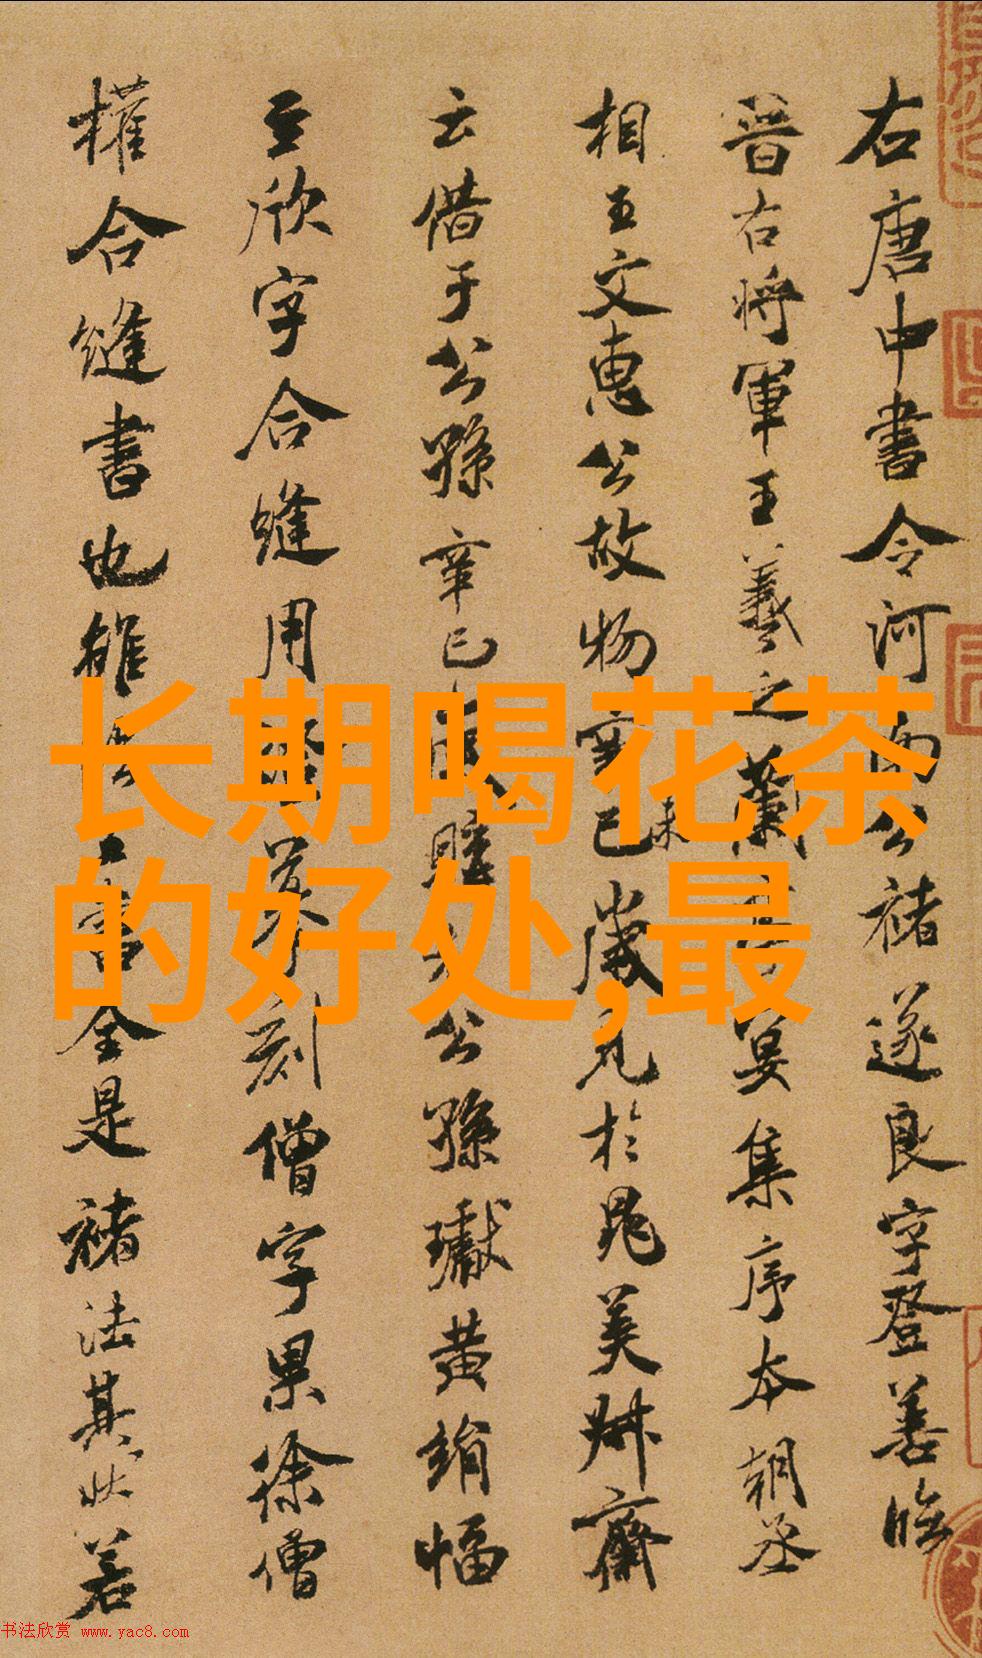 右唐中書令河南公褚遂良字登善臨
晉右將軍王羲之蘭亭宴集序本朝丞
相王文惠公故物辛巳歲見於晁美叔齋
未
云借于公孫辛巳
公孫瓛黄絹幅
至欣字合縫用
刻僧字果徐僧
權合縫書也雖
全是褚法其狀若
长期喝花茶
的好处,最
书法欣赏 www.yac8.com